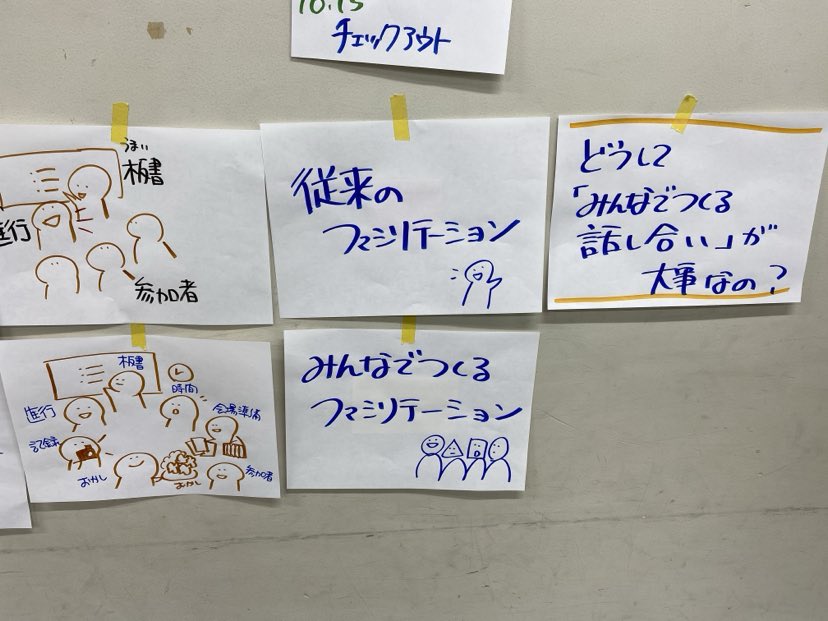 10:15
チェックアウト
うまい
板書
進行
参加者
従来の
ファシリテーション
どうして
「みんなでつくる
話し合い」が
大事なの?
板書
時間
進行
会場準備
記録
おかし
おかし
参加者
みんなでつくる
ファシリテーション